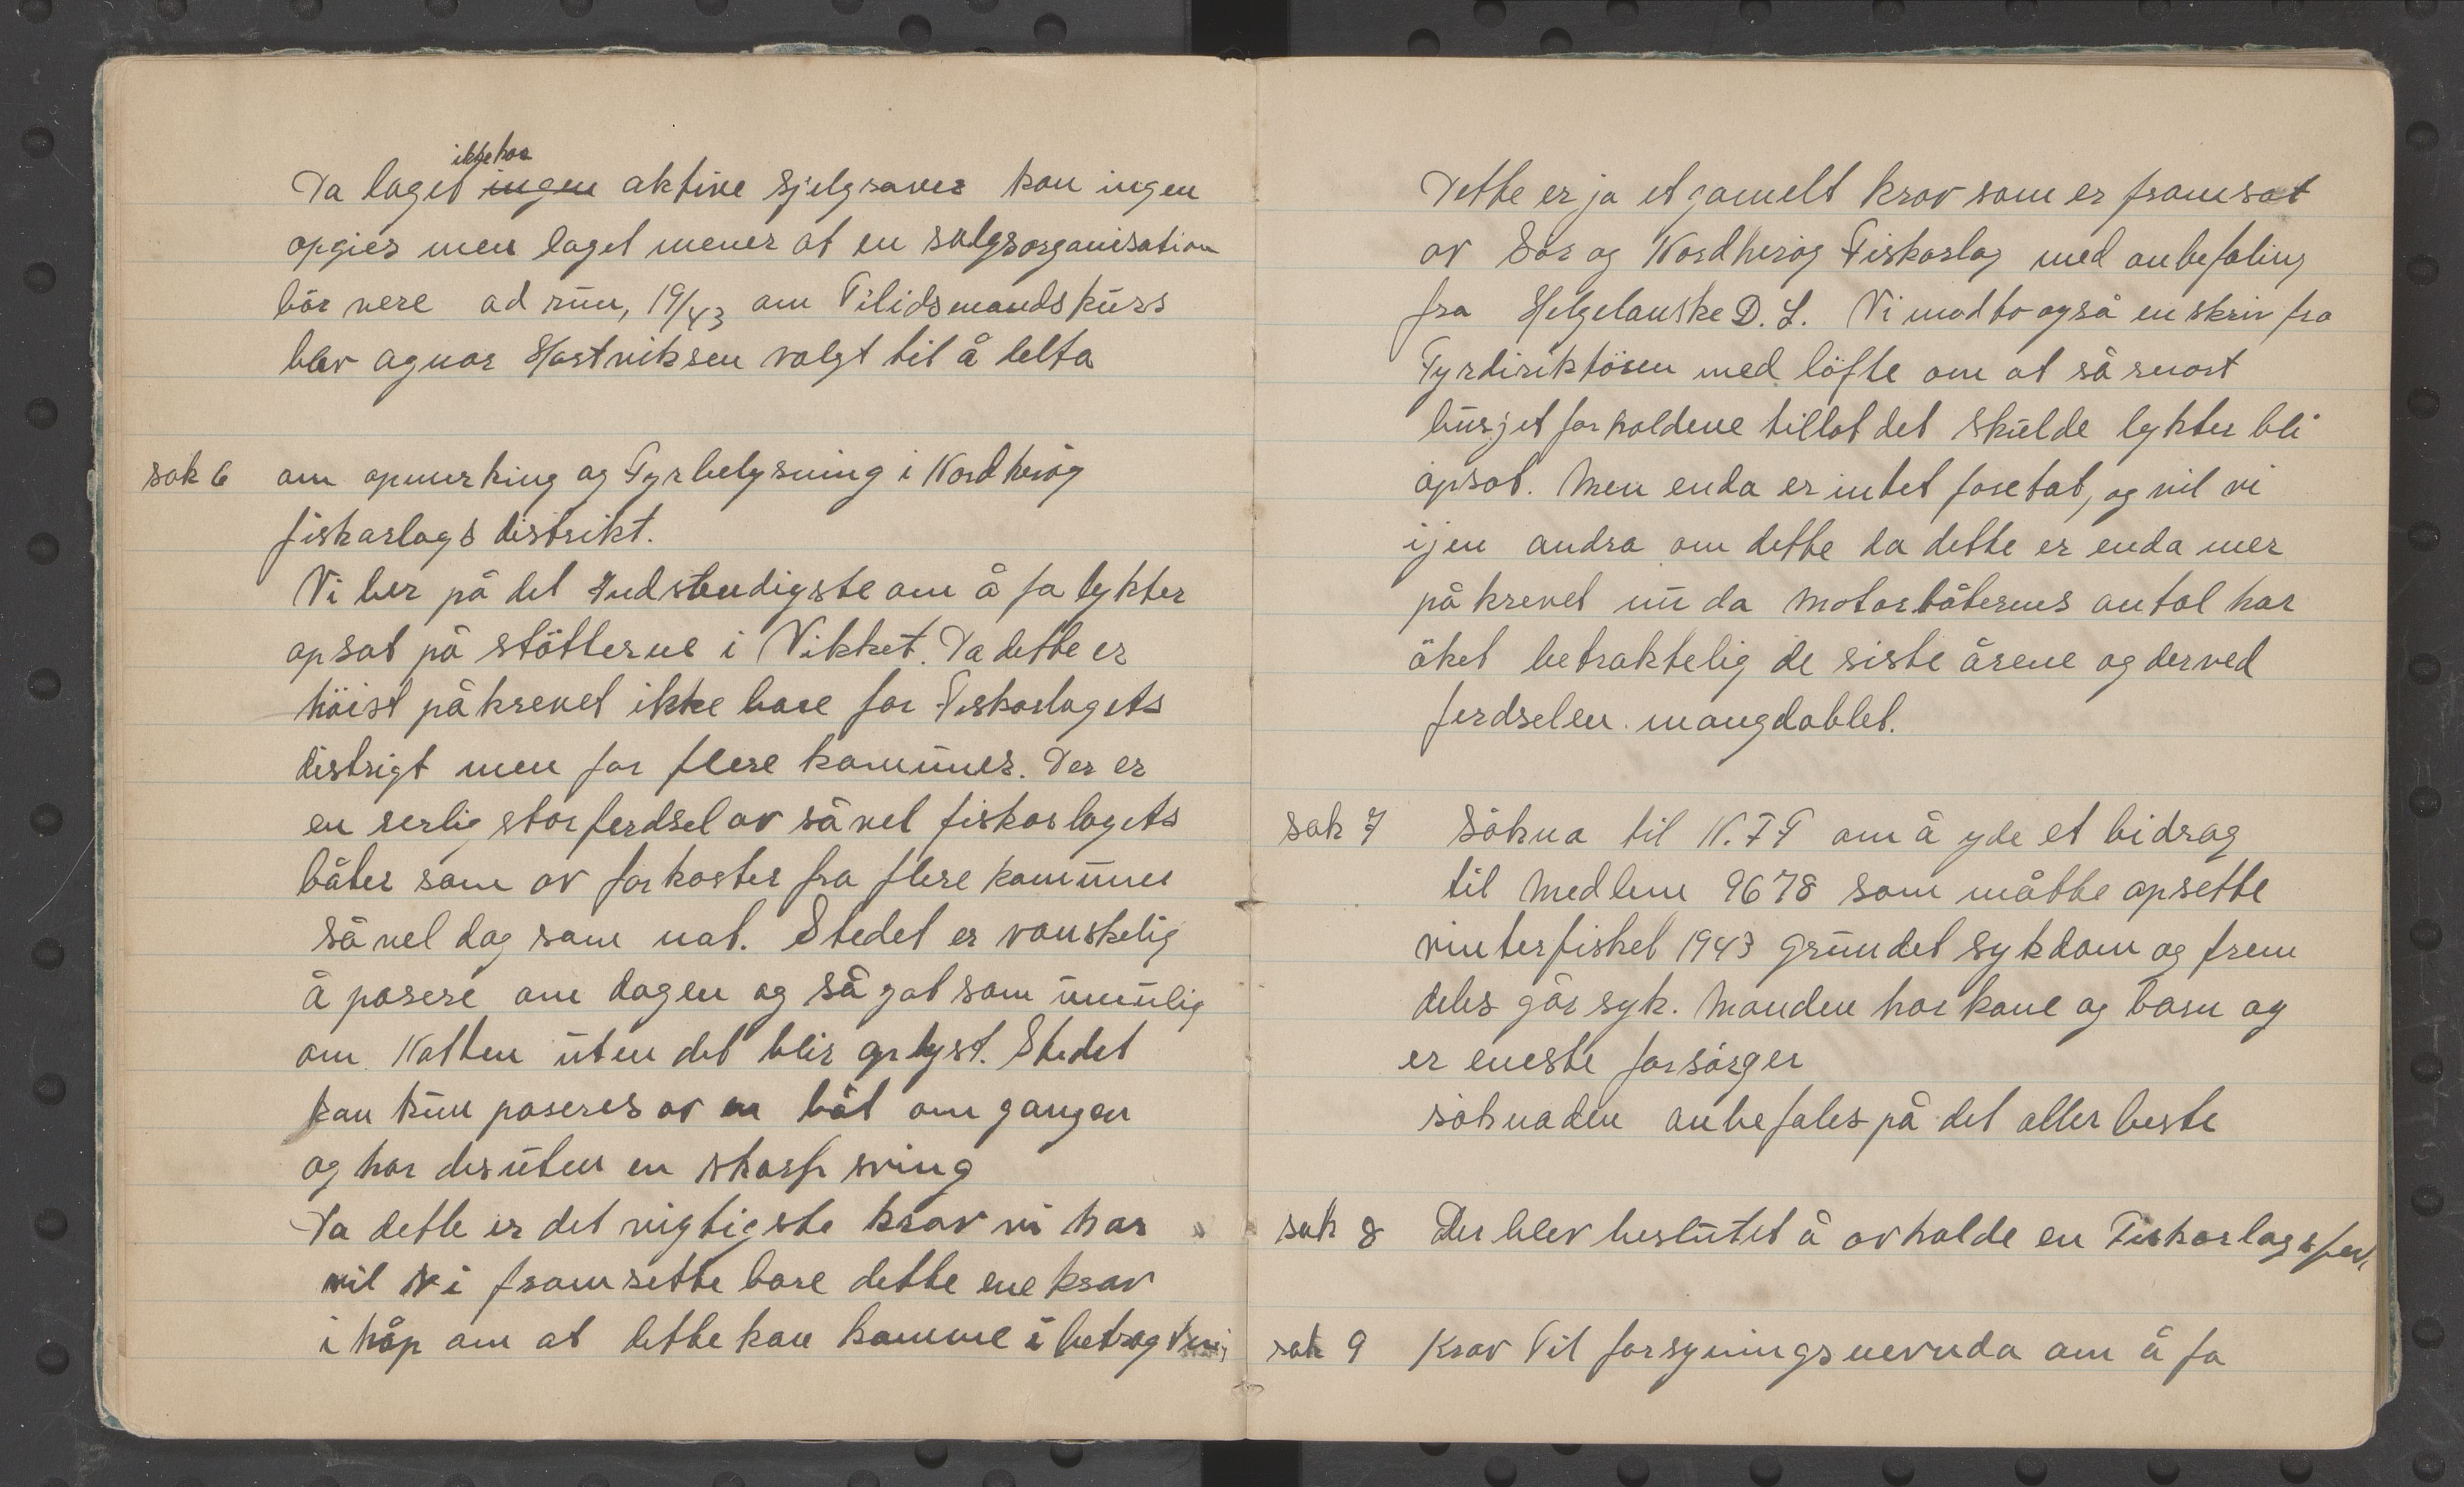 Da laget ikke har ingen aktive Sjelgraver kan ingen
opgies men laget mener at en salgsorganisation
bör vere ad run, 19/43 om Tilidsmandskurs
blev Agnar Hastviksen valgt til å delta
sak 6 om opmerking og Fyrbelysning i Nord herøy
fiskarlags distrikt.
Vi ber på det indstendigste om å fa lykter
opsat på stötterne i Vikket. Da dette er
höist påkrevet ikke bare for Fiskarlagets
distrigt men for flere komuner. Der er
en serlig stor ferdsel av såvel fiskarlagets
båter som av farkoster fra flere komuner
såvel dag som nat. Stedet er vanskelig
å pasere om dagen og så gat som umulig
om Natten uten det blir oplyst. Stedet
kan kun paseres av en båt om gangen
og har desuten en skarp sving
Da dette er det vigtigste krav vi har
vil Vi framsette bare dette ene krav
i håp om at dette kan komme i betragtning
Dette er jo et gamelt krav som er framsat
av Sör og Nordherøy Fiskarlag med anbefaling
fra Helgelanske D. L. Vi modto også en skriv fra
Fyrdiriktören med löfte om at så snart
busjet forholdene tillot det skulde lykter bli
opsat. Men enda er intet foretat, og vil vi
ijen andra om dette da dette er enda mer
på krevet nu da Motorbåternes antal har
öket betraktelig de siste årene og derved
ferdselen mangdoblet.
sak 7 Sökna til N.F.F om å yde et bidrag
til Medlem 9678 som måtte opsette
vinterfisket 1943 grundet sykdom og frem
deles går syk. Manden har kone og barn og
er eneste forsörger
söknaden anbefales på det aller beste
sak 8 Der blev beslutet å avholde en Fiskarlagsfest,
sak 9 Krav Til forsyningsnevnda om å fa